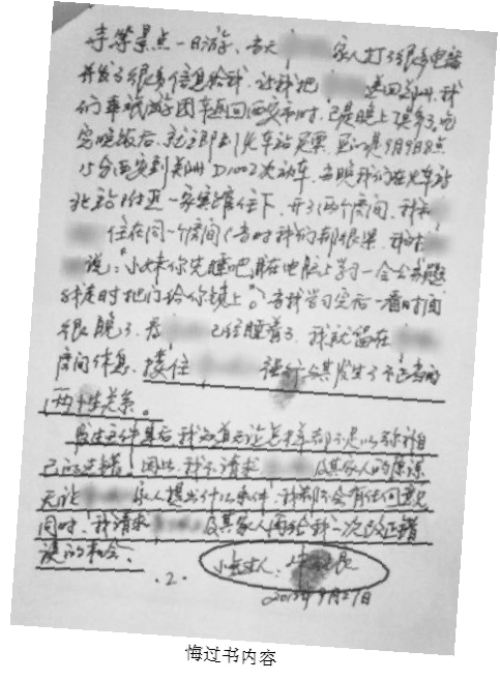 李等景点一日游。当天 家人打了很多电话
并发了很多信息给我,让我把 送回郑州,我
们乘坐旅游团车返回西安市时,已是晚上 吃
完晚饭后,就立即到火车站买票,买的是9月9日8点
15分西安到郑州D1002次动车,当晚我们在火车站
北站附近一家宾馆住下,开了两个房间,我和
住在同一个房间(当时我们都很累,我对
说:“小妹你先睡吧,我在电脑上学习一会公务员题
我走时把门给你锁上”。)当我学习完后一看时间
很晚了,看 已经睡着了,我就留在
房间休息,搂住 强行与其发生了不正当的
两个性关系。
发生这件事后,我知道无论怎样都不足以弥补自
己的过错,因此,我不请求 及其家人的原谅
无论 家人提出什么条件,我都不会有任何意见
同时,我请求 及其家人再给我一次改正错
误的机会。
·2·
2013年9月27日
悔过书内容